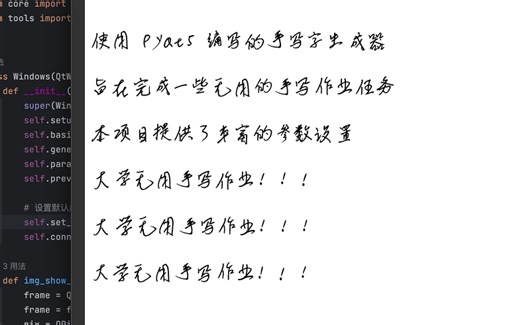 m core import
m tools import
ss Windows(QtW
def __init__(
super(Win
self.setu
self.basi
self.gene
self.para
self.prev
# 设置默认
self.set_
self.conn
3 用法
def img_show_
frame = Q
frame = f
使用 Pyat5 编写的手写字生成器
旨在完成一些无用的手写作业任务
本项目提供了丰富的参数设置
大学无用手写作业！！！
大学无用手写作业！！！
大学无用手写作业！！！